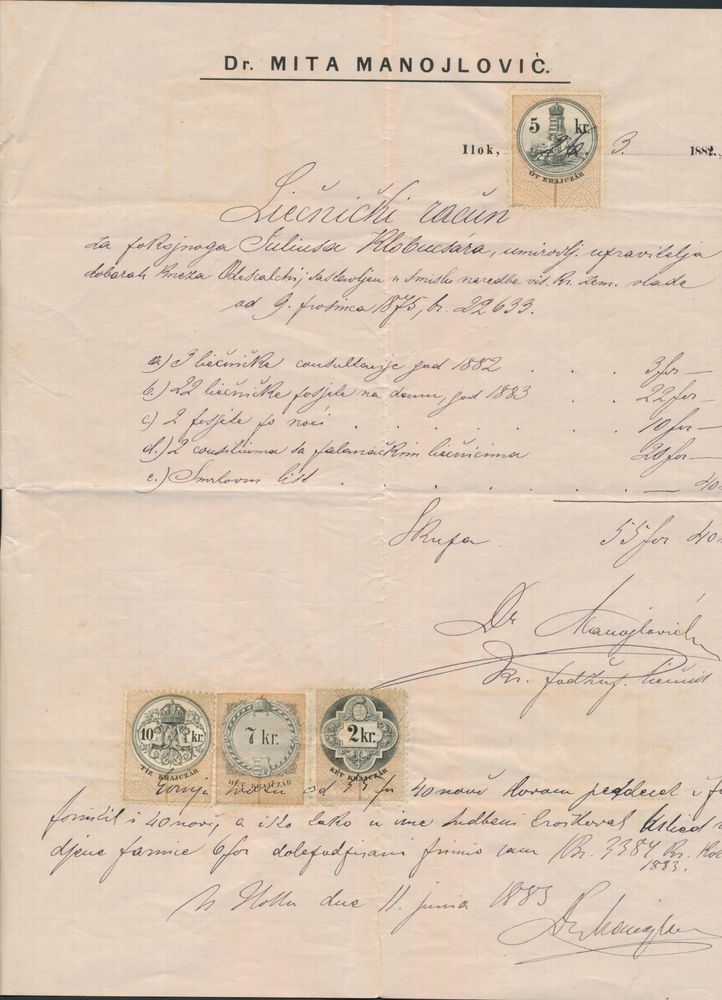 Dr. MITA MANOJLOVIĆ.
5 kr.
ÖT KRAJCZÁR
Ilok, 26. 3. 1882.
Liečnički račun
za pokojnoga Juliusa Klobucsára, umirovlj. upravitelja
dobarah kneza Odescalchi, sastavljen u smislu naredbe vis. kr. zem. vlade
od 9. prosinca 1875, br. 22633.
a.) 3 liečničke consultacije god 1882 . . . 3 for —
b.) 22 liečničke posjete na domu, god 1883 . . 22 for —
c.) 2 posjete po noći . . . . . . 10 for —
d.) 2 consiliuma sa palanačkim liečnicima 20 for —
e.) Smrtovni list . . . . . . — 40
Skupa 55 for 40
Dr Manojlović
kr. podžup. liečnik
10 kr.
TIZ KRAJCZÁR
7 kr.
HÉT KRAJCZÁR
2 kr.
KÉT KRAJCZÁR
Gornju svotu od 55 for 40 novč slovom petdeset i
forinti i 40 novč, a isto tako u ime
6 for dolepodpisani primio sam Br. 3384
1883.
U Iloku dne 11. junia 1883
Dr Manojlov